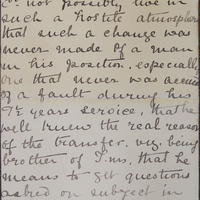 Cd. not possibly live in
such a hostile atmosphere
that such a change was
never made of a man
in his position. especially
one that never was accused
of a fault during his
7½ years service, that he
well knew the real reason
of the transfer. viz. being
brother of J.ns, that he
means to get questions
asked on subject in